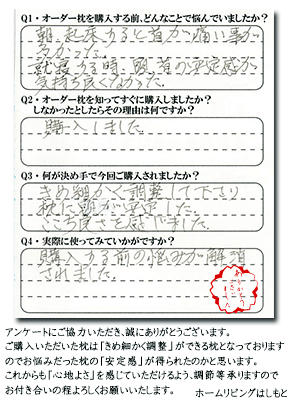 Q1・オーダー枕を購入する前、どんなことで悩んでいましたか?
朝、起床すると首が痛い事が
多かった。
就寝する時、頭、首の安定感が
気持ち良くなかった。
Q2・オーダー枕を知ってすぐに購入しましたか?
しなかったとしたらその理由は何ですか?
購入しました。
Q3・何が決め手で今回ご購入されましたか?
きめ細かく調整して下さり
枕に頭が安定した。
ここち良さを感じました。
Q4・実際に使ってみていかがですか?
購入する前の悩みが解消
されました。
ありがとう
アンケートにご協力いただき、誠にありがとうございます。
ご購入いただいた枕は「きめ細かく調整」ができる枕となっております
のでお悩みだった枕の「安定感」が得られたのかと思います。
これからも「心地よさ」を感じていただけるよう、調節等承りますので
お付き合いの程よろしくお願いいたします。 ホームリビングはしもと